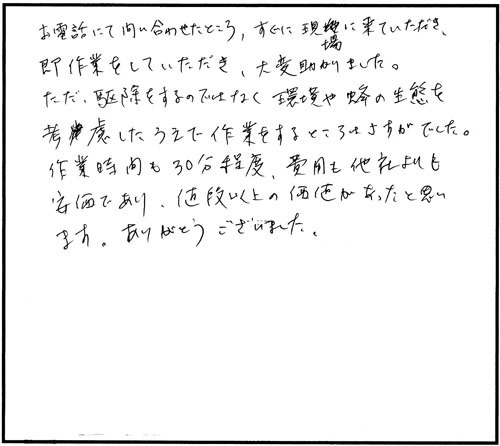 お電話にて問い合わせたところ、すぐに現場に来ていただき、
即作業をしていただき、大変助かりました。
ただ、駆除をするのではなく環境や蜂の生態を
考慮したうえで作業をするところはさすがでした。
作業時間も30分程度、費用も他社よりも
安価であり、値段以上の価値があったと思い
ます。ありがとうございました。